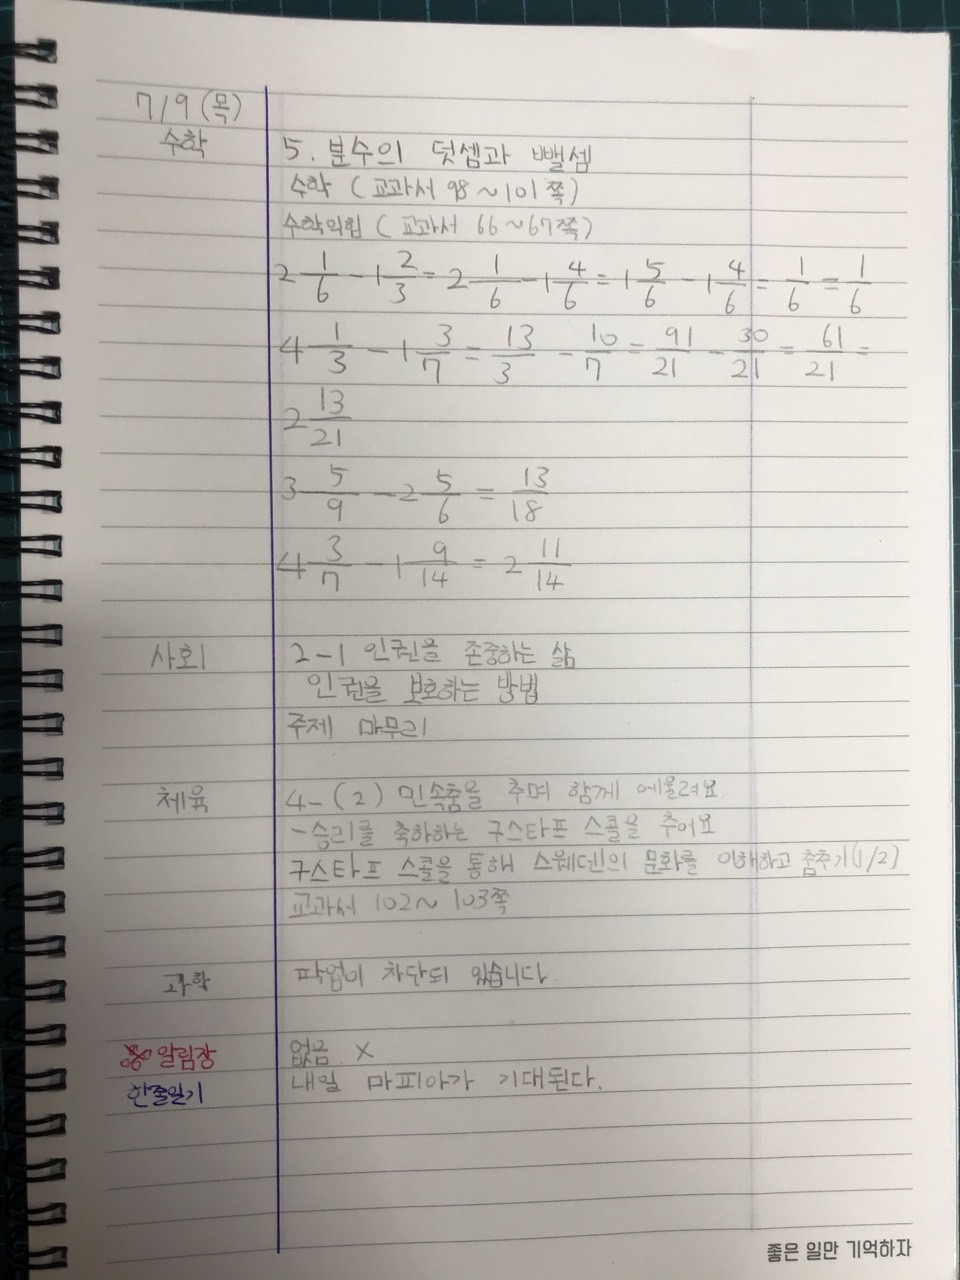 7/9 (목)
수학 5. 분수의 덧셈과 뺄셈
수학 (교과서 98~101쪽)
수학익힘 (교과서 66~67쪽)
2 1/6 - 1 2/3 = 2 1/6 - 1 4/6 = 1 5/6 - 1 4/6 = 1/6 = 1/6
4 1/3 - 1 3/7 = 13/3 - 10/7 = 91/21 - 30/21 = 61/21 =
2 13/21
3 5/9 - 2 5/6 = 13/18
4 3/7 - 1 9/14 = 2 11/14
사회 2-1 인권을 존중하는 삶
인권을 보호하는 방법
주제 마무리
체육 4-(2) 민속춤을 추며 함께 에울려요.
-승리를 축하하는 구스타프 스콜을 추어요
구스타프 스콜을 통해 스웨덴의 문화를 이해하고 춤추기(1/2)
교과서 102~103쪽
과학 팍업이 차단되 있습니다.
알림장 없음. X
한줄일기 내일 마피아가 기대된다.
좋은 일만 기억하자